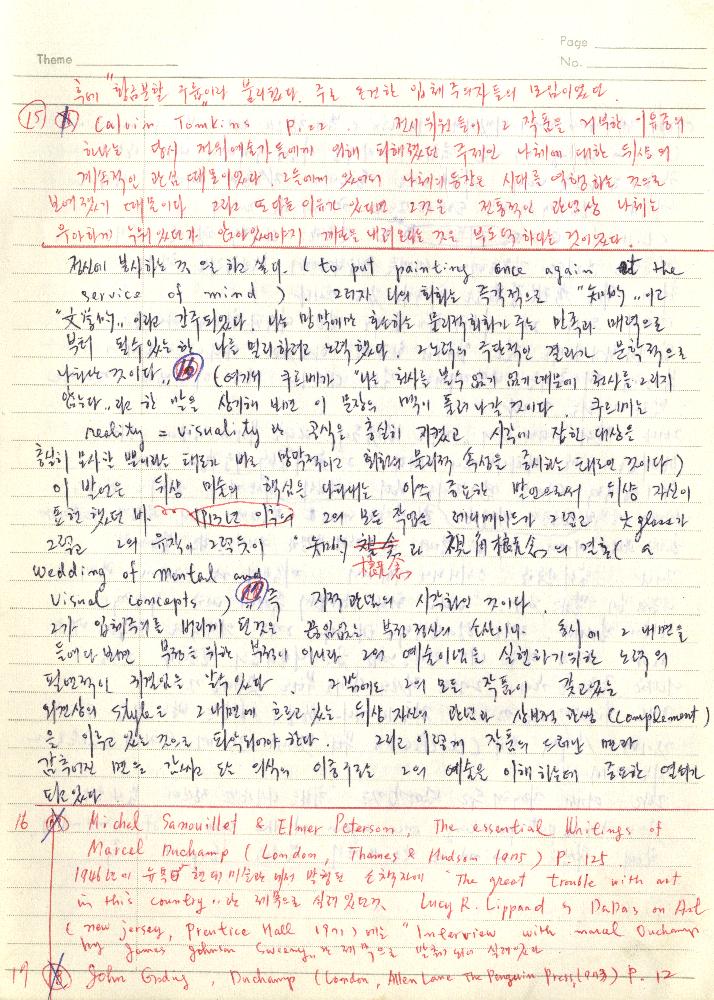 Page
Theme
No.
후에 "황금분할 구릅"이라 불리웠다. 주로 온건한 입체주의자들의 모임이었다.
15 Calvin Tomkins P.22. 전시위원들이 그 작품을 거부한 이유중의
하나는 당시 전위예술가들에게 의해 피해졌던 주제인 나체에 대한 뒤샹의
계속적인 관심 때문이었다. 그들에게 있어서 나체의 등장은 시대를 역행하는 것으로
보여졌기 때문이다 그리고 또다른 이유가 있다면 그것은 전통적인 관념상 나체는
우아하게 누워있던가 앉아있어야지 계단을 내려오는 것은 부도덕하다는 것이었다.
전시에 봉사하는 것으로 하고싶다. (to put painting once again at the
service of mind). 그러자 나의 회화는 즉각적으로 "知的"이고
"文学的"이라고 간주되었다. 나는 망막에만 호소하는 물리적회화가 주는 만족과 매력으로
부터 될수있는한 나를 멀리하려고 노력했다. 그노력의 극단적인 결과가 문학적으로
나타난 것이다." 16 (여기의 쿠르베가 "나는 천사를 볼수 없기 때문에 천사를 그리지
않는다"라고 한 말을 상기해 보면 이 문장의 맥이 풀려나갈 것이다. 쿠르베는
reality = visuality 라는 공식을 충실히 지켰고 시각에 잡힌 대상을
충실히 묘사할 뿐이라는 태도가 바로 망막적이고 회화의 물리적 속성을 중시하는 태도인 것이다)
이 발언은 뒤샹 미술의 핵심을 나타내는 아주 중요한 발언으로써, 뒤샹 자신이
표현했던 바. 1912년 이후의 그의 모든 작업은 레디메이드가 그렇고 大glass가
그렇고 그의 유작이 그렇듯이 "知的 概念과 視角 槪念의 결혼 (a
wedding of mental and
visual concepts) 17 즉 지적 관념의 시각화인 것이다.
그가 입체주의를 버리게 된것은 끊임없는 부정정신의 소산이나. 동시에 그 내면을
들여다 보면 부정을 위한 부정이 아니라 그의 예술이념을 실현하기위한 노력의
필연적인 귀결임을 알수 있다. 그밖에도 그의 모든 작품이 갖고있는
외견상의 style은 그 내면에 흐르고 있는 뒤샹 자신의 관념과 상보적 한쌍 (complement)
을 이루고 있는 것으로 해석되어야 한다 그리고 이렇게 작품의 드러난 면과
감추어진 면을 간파하고 의식의 이중구조는 그의 예술을 이해하는데 중요한 열쇠가
되고있다
16 Michel Sanouillet & Elmer Peterson The essential Writings of
Marcel Duchamp (London, Thames & Hudson 1975) P. 125
1946년에 뉴욕 현대미술관에서 발행된 소책자에 "The great trouble with art
in this country"라는 제목으로 실려있던것. Lucy R. Lippard 의 Dadas on Art
(new jersey, Prentice Hall 1971) 에는 "Interview with marcel Duchamp
by James Johnson Sweeny"라는 제목으로 발췌되어 실려있다.
17 John Golding, Duchamp (London, Allen Lane The Penguin Press, 1973) P. 12